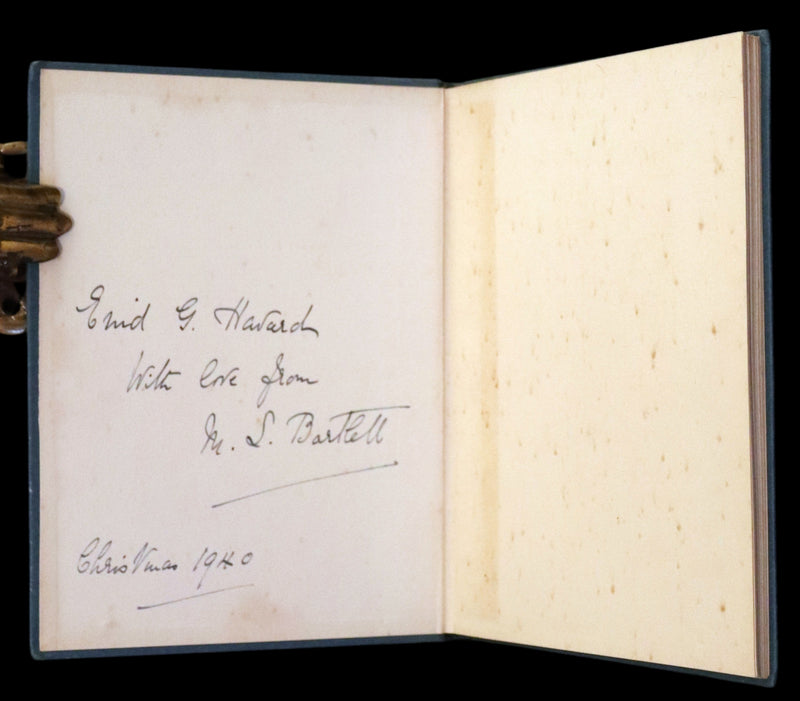 Enid G. Havard
With love from
M. L. Bartlett
Christmas 1940